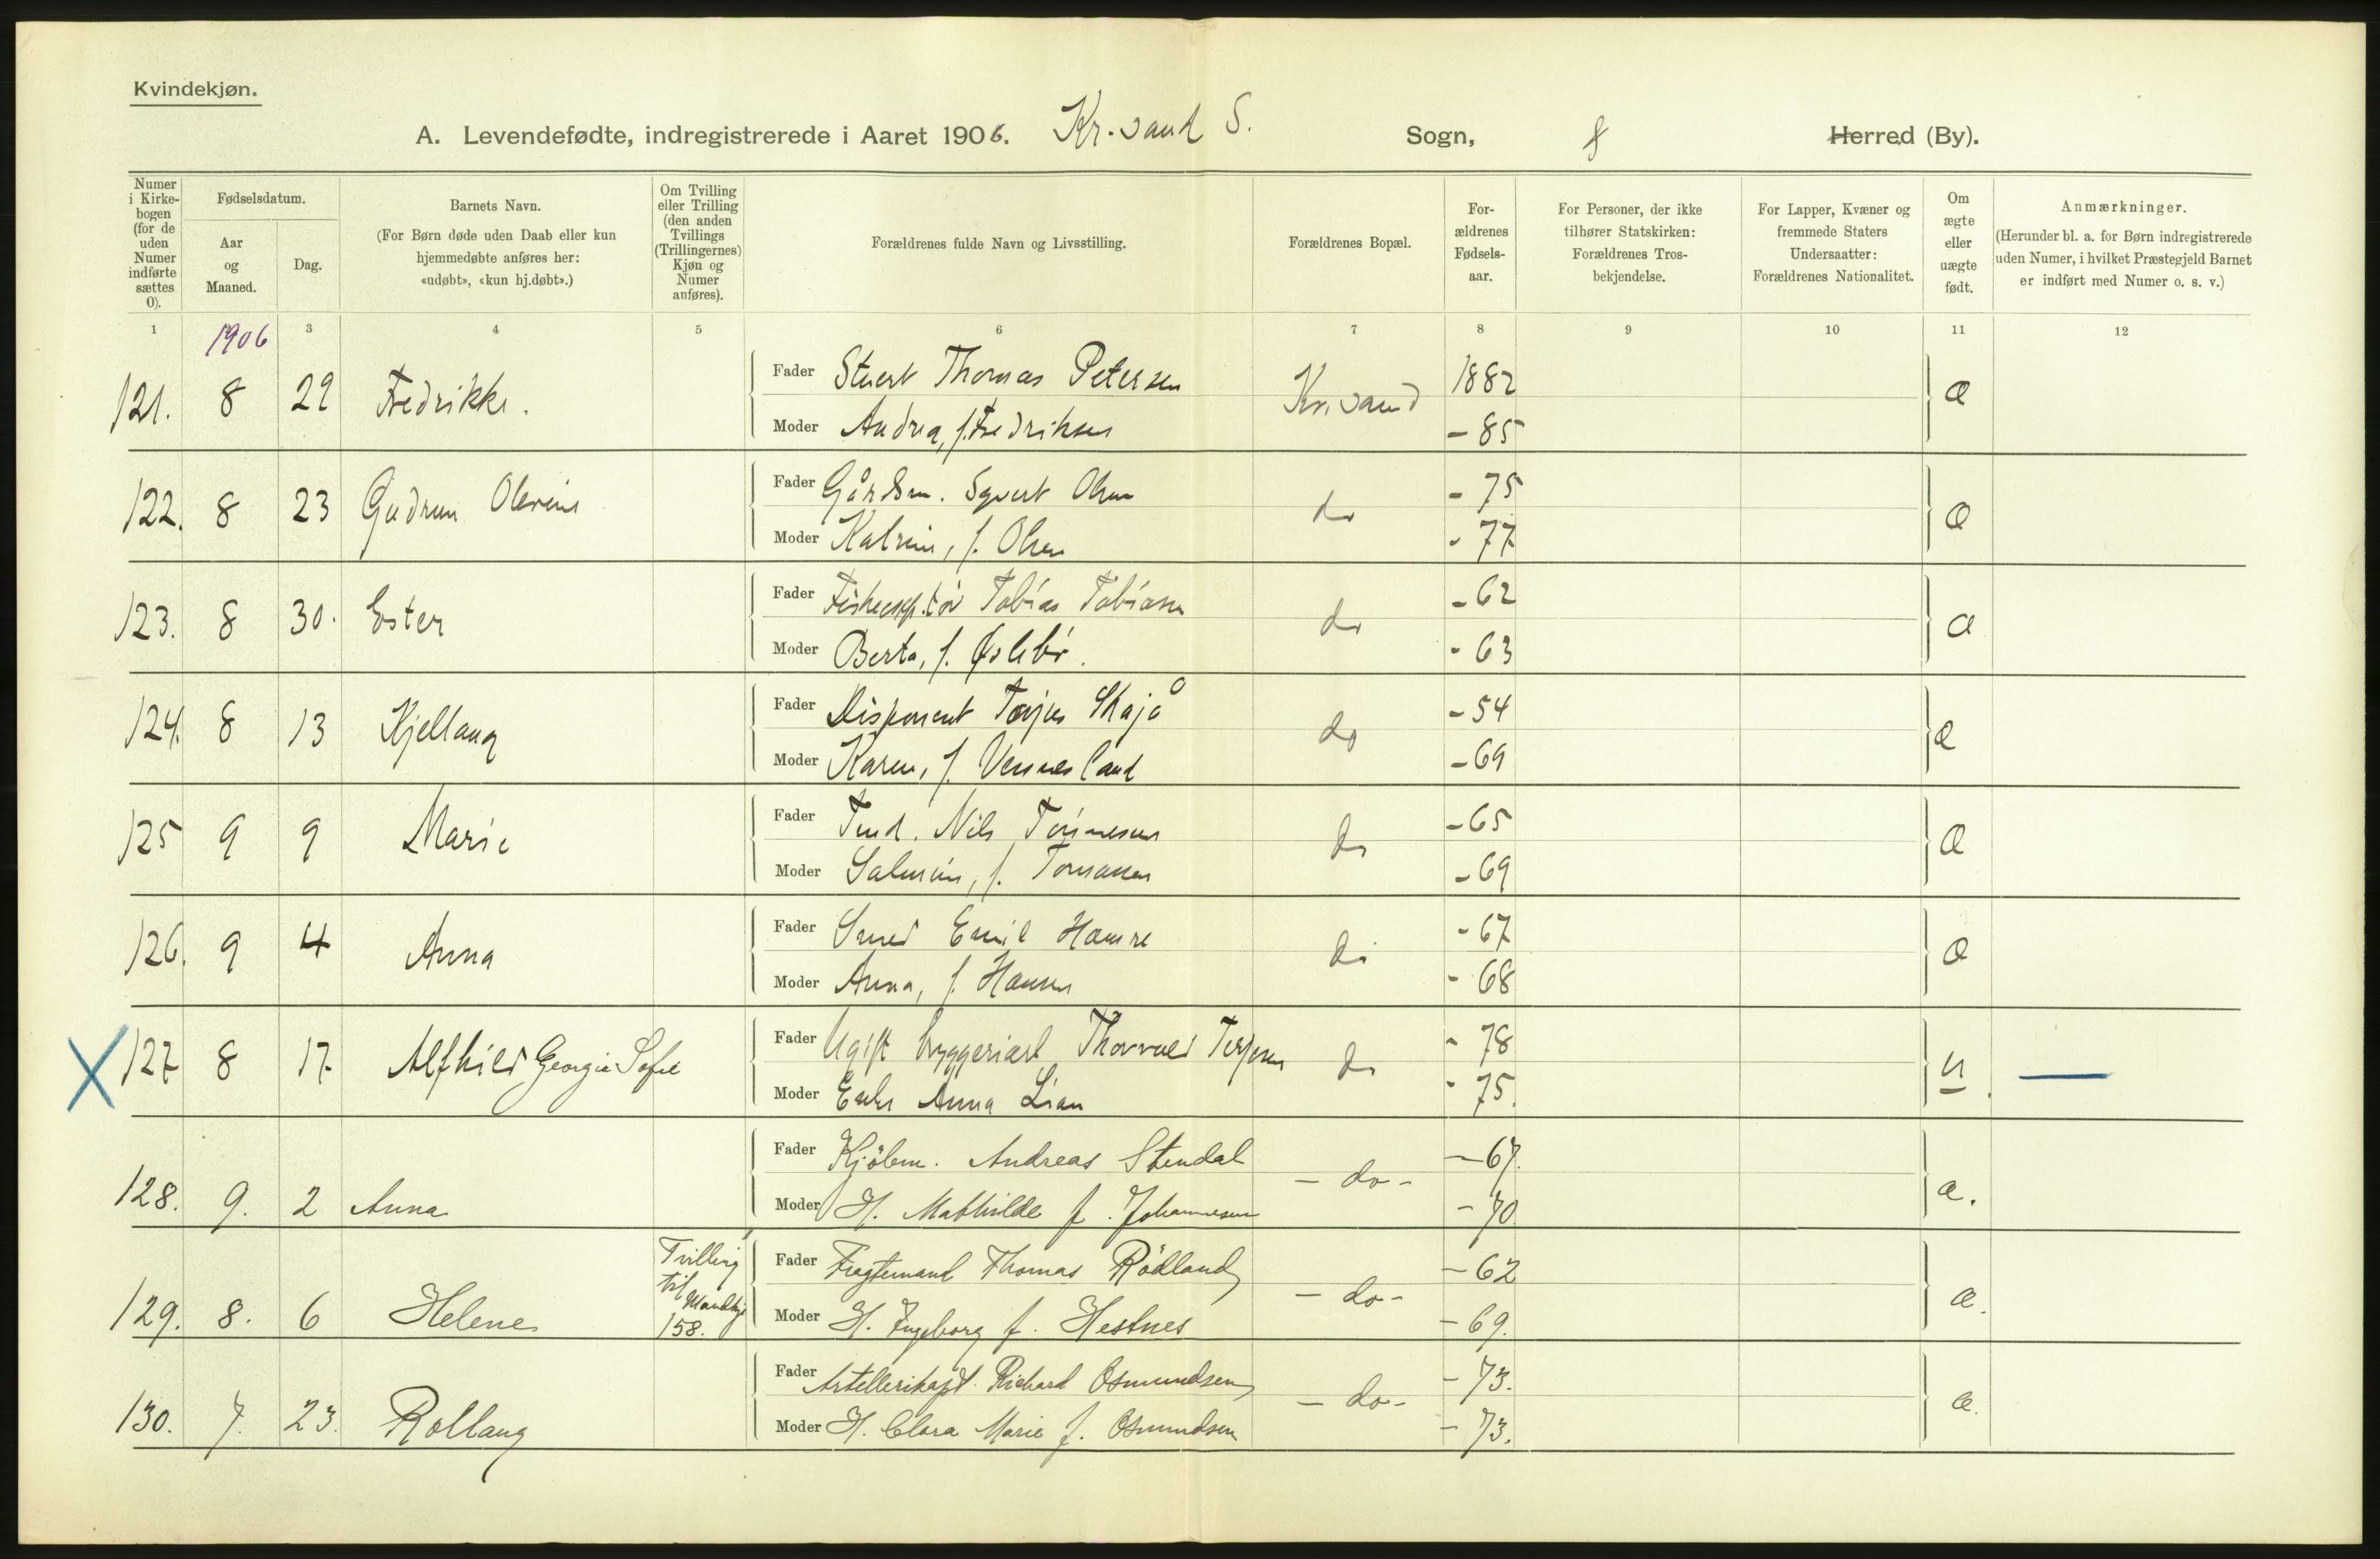 Kvindekjøn.
A. Levendefødte, indregistrerede i Aaret 1906. Kr.sand S. Sogn, Herred (By).
Numer i Kirkebogen (for de uden Numer indførte sættes 0).
Fødselsdatum.
Aar og Maaned.
Dag.
Barnets Navn.
(For Børn døde uden Daab eller kun hjemmedøbte anføres her: «udøbt», «kun hj.døbt».)
Om Tvilling eller Trilling (den anden Tvillings (Trillingernes) Kjøn og Numer anføres).
Forældrenes fulde Navn og Livsstilling.
Forældrenes Bopæl.
Forældrenes Fødselsaar.
For Personer, der ikke tilhører Statskirken: Forældrenes Trosbekjendelse.
For Lapper, Kvæner og fremmede Staters Undersaatter: Forældrenes Nationalitet.
Om ægte eller uægte født.
Anmærkninger.
(Herunder bl. a. for Børn indregistrerede uden Numer, i hvilket Præstegjeld Barnet er indført med Numer o. s. v.)
1 3 4 5 6 7 8 9 10 11 12
1906
121. 8 29 Fredrikke. Fader Stuert Thomas Petersen Kr.sand 1882 æ
Moder Andrea, f. Fredriksen - 85
122. 8 23 Gudrun Olevine Fader Gårdsm. Syvert Olsen do - 75 æ
Moder Katrine, f. Olsen - 77
123. 8 30. Ester Fader Tobias Tobiasen do - 62 æ
Moder Berta, f. Øslebö. - 63
124. 8 13 Kjellaug Fader Disponent Torjus Skajå do - 54 æ
Moder Karen, f. Vennesland - 69
125 9 9 Marie Fader Nils Tönnesen do - 65 æ
Moder Salmine, f. Tomassen - 69
126. 9 4 Anna Fader Smed Emil Hamre do - 67 æ
Moder Anna, f. Hansen - 68
X 127 8 17 Alfhild Georgia Sofie Fader Ugift bryggeriarb. Thorvald Terjesen do - 78 u. —
Moder Enke Anna Lian - 75.
128. 9. 2 Anna Fader Kjölem. Andreas Stendal - do - - 67. æ.
Moder H. Mathilde f. Johannesen - 70
129. 8. 6 Helene Tvilling til Mandkj. 158. Fader Fragtemand Thomas Rödland - do - - 62 æ.
Moder H. Ingeborg f. Hestnes - 69.
130. 7. 23. Rollaug Fader Artillerikapt. Richard Osmundsen - do - - 73. æ.
Moder H. Clara Marie f. Osmundsen - 73.